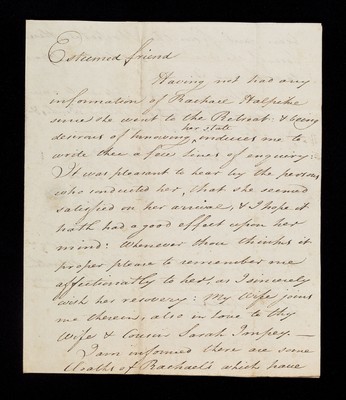 Esteemed friend
Having not had any
information of Rachael
since she went to the Retreat & being
her state
desirous of knowing, induces me to
write thee a few lines of enquiry:
It was pleasant to hear by the persons
who conducted her, that she seemed
satisfied on her arrival, & I hope it
hath had a good effect upon her
mind: Whenever thou thinks it
proper please to remember me
affectionatly to her, as I sincerely
wish her recovery: My Wife joins
me therein, also in love to thy
Wife & Cousin Sarah Impey.—
I am informed there are some
Cloaths of Rachael's which have